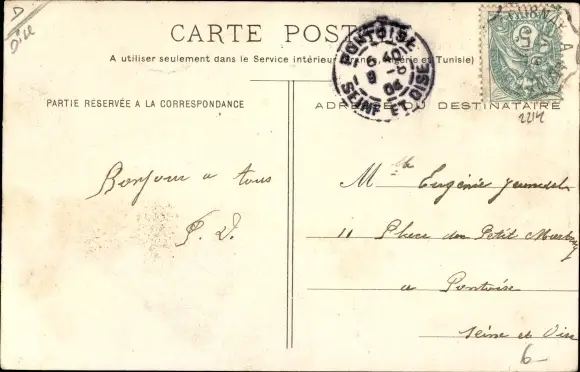 D
Oise
CARTE POST
A utiliser seulement dans le Service intérieur (France, Algérie et Tunisie)
PONTOISE
6 40
9 -8
04
SEINE ET OISE
PARTIE RÉSERVÉE A LA CORRESPONDANCE
ADRESSE DU DESTINATAIRE
2214
Bonjour a tous
P. V.
Mlle Eugénie
11 Place du Petit Martroy
a Pontoise
Seine et Oise
6-